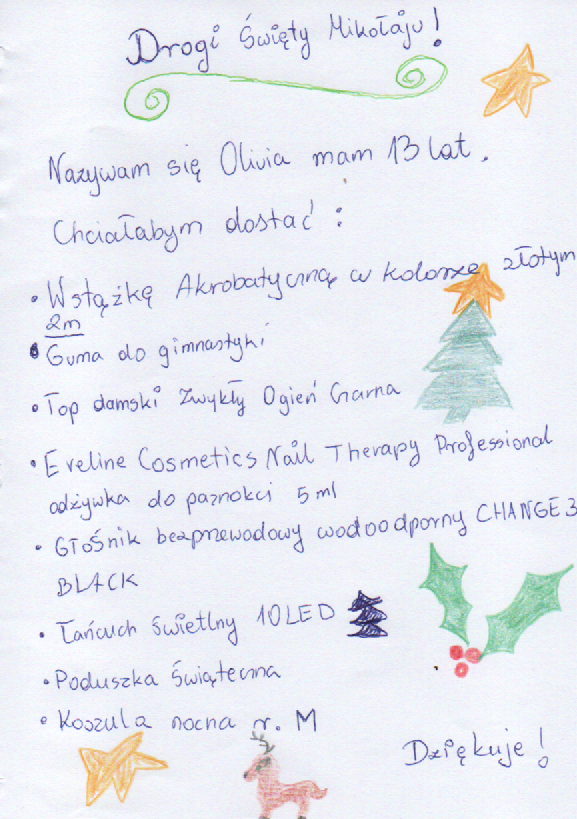 Drogi Święty Mikołaju!
Nazywam się Olivia mam 13 lat.
Chciałabym dostać :
• Wstążkę Akrobatyczną w kolorze złotym
2m
• Guma do gimnastyki
• Top damski Zwykły Ogień Czarna
• Eveline Cosmetics Nail Therapy Professional
odżywka do paznokci 5 ml
• Głośnik bezprzewodowy wodoodporny CHANGE 3
BLACK
• Łańcuch świetlny 10LED
• Poduszka Świąteczna
• Koszula nocna r. M
Dziękuje!